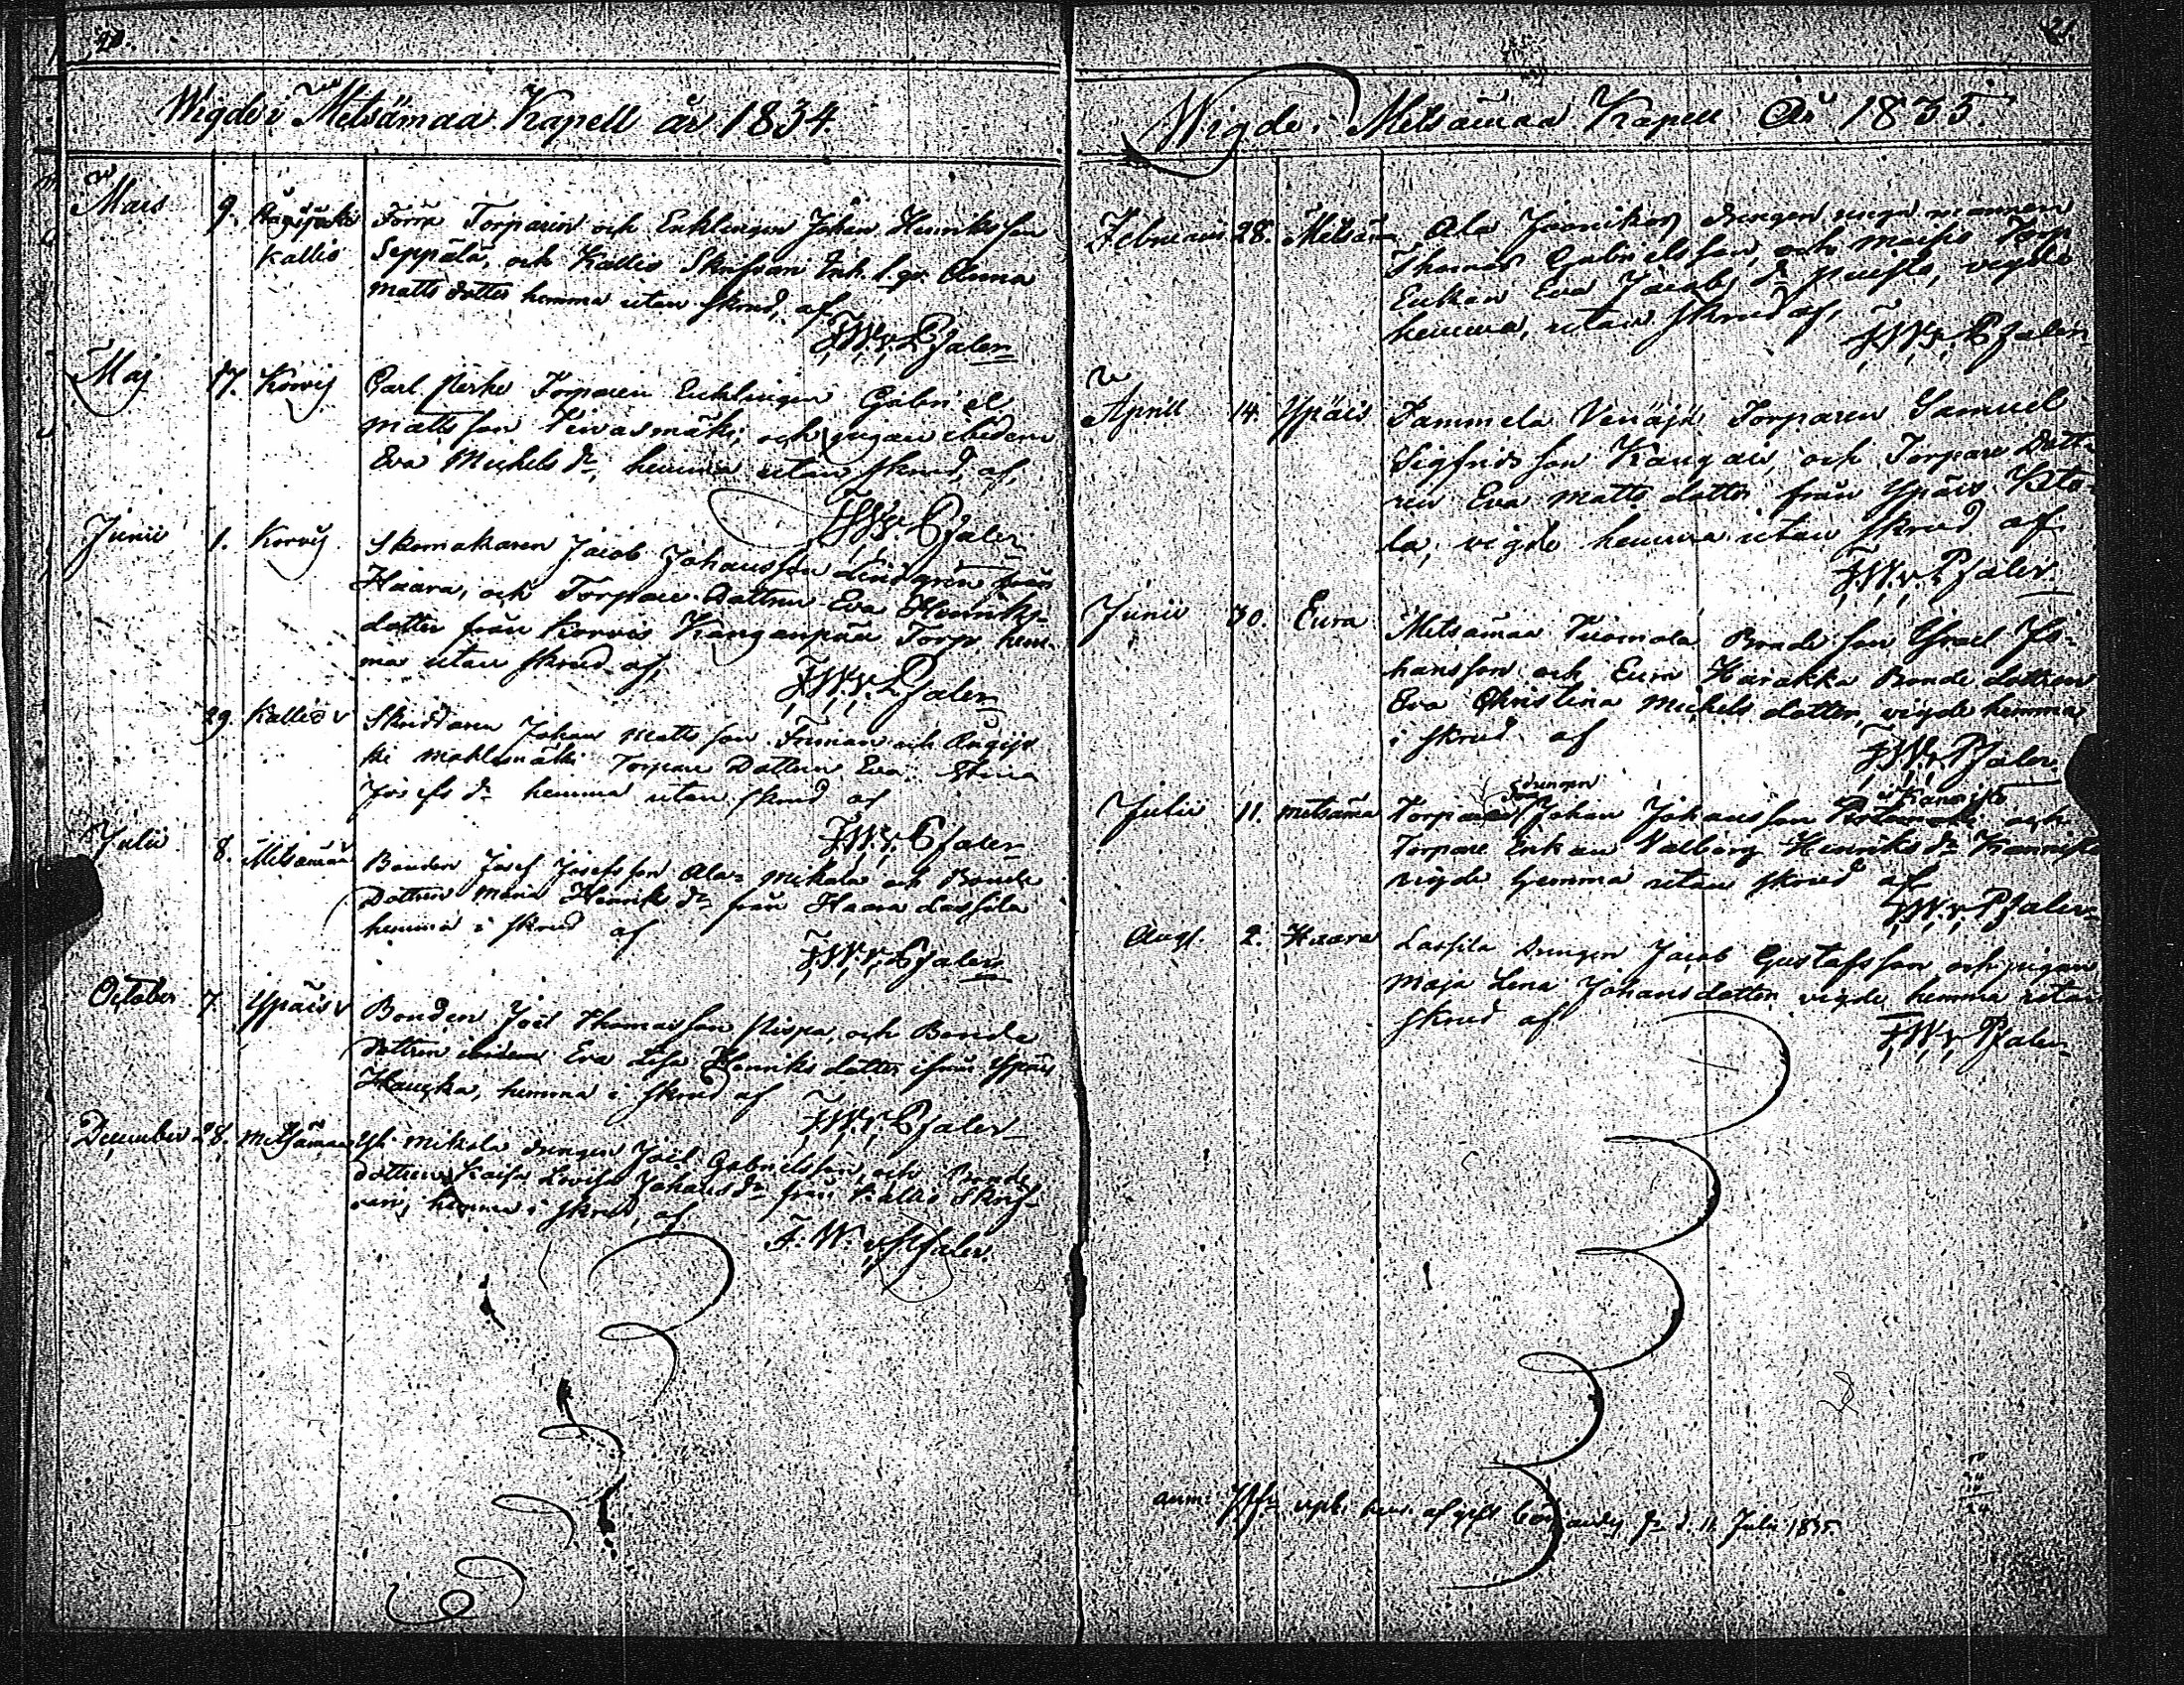 20.
Wigde i Metsämaa Kapell år 1834.
Mars 9. Kallis Förra Torparen och Enklingen Johan Henriksson
Seppälä, och Kallis Skrifvari Enk. Anna
Matts dotter hemma utan skrud, af
F. W. v. Pfaler
Maj 17. Korvis Carl Perho Torparen Enklingen Gabriel
Mattsson Teivasmäki, och pigan ibidem
Eva Michels dr hemma utan skrud, af
F. W. v. Pfaler
Junii 1. Korvis Skomakaren Jacob Johansson Lindgrén från
Haara, och Torpare Dottren Eva Henriks
dotter från Korvis Kanganpää Torp hem-
ma utan skrud af,
F. W. v. Pfaler
29. Kallis v Skräddaren Johan Mattsson och
Torpare Dottren Eva Stina
Josefs dr hemma utan skrud af
F. W. v. Pfaler
Julii 8. Metsämaa Bonden Josef Josefsson Ala-Mikola och Bonde
Dottren Maria Henriks dr från Haara Lassila
hemma i skrud af
F. W. v. Pfaler
October 7. Ypäis v Bonden Joel Thomasson Pispa, och Bonde
Dottren ibidem Eva Lisa Henriks dotter ifrån Ypäis
Haucka, hemma i skrud af
F. W. v. Pfaler
December 28. Metsämaa Yli Mikola drengen Joel Gabrielsson, och Bonde
dottren Kaisa Lovisa Johans dr från Kallis Skrif-
vari, hemma i skrud, af
F. W. v. Pfaler
21.
Wigde i Metsämaa Kapell År 1835.
Februarii 28. Metsäm Ala Jaonikos drengen unga mannen
Thomas Gabrielsson, och Torp
Enkan Eva Jacobs dr vigde
hemma, utan skrud af,
F. W. v. Pfaler
April 14. Ypäis Tammela Venäjä Torparen Samuel
Sigfridsson Kangas, och Torpare Dott-
ren Eva Matts dotter från Ypäis Ylta-
la, vigde hemma utan skrud af
F. W. v. Pfaler
Junii 30. Eura Metsämaa Tuomola Bonde son Israel Jo-
hansson och Eura Harakka Bonde dottren
Eva Christina Michels dotter, vigde hemma
i skrud af
F. W. v. Pfaler
Julii 11. Metsämaa drengen Johan Johansson Kannisto och
Torpare Enkan Valborg Henriks dr Kannisto
vigde hemma utan skrud af
F. W. v. Pfaler
Aug. 2. Haara Lassila Drengen Jacob Gustafsson och pigan
Maja Lena Johansdotter vigde hemma utan
skrud af
F. W. v. Pfaler
anm: d. 11 Julii 1835